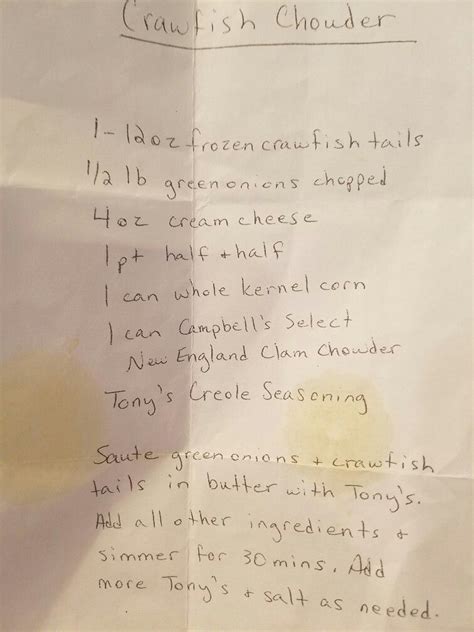 Crawfish Chouder
1-12oz frozen crawfish tails
1/2 lb green onions chopped
4 oz cream cheese
1 pt half + half
1 can whole kernel corn
1 can Campbell's Select
New England Clam Chowder
Tony's Creole Seasoning
Saute green onions + crawfish
tails in butter with Tony's.
Add all other ingredients +
simmer for 30 mins. Add
more Tony's + salt as needed.